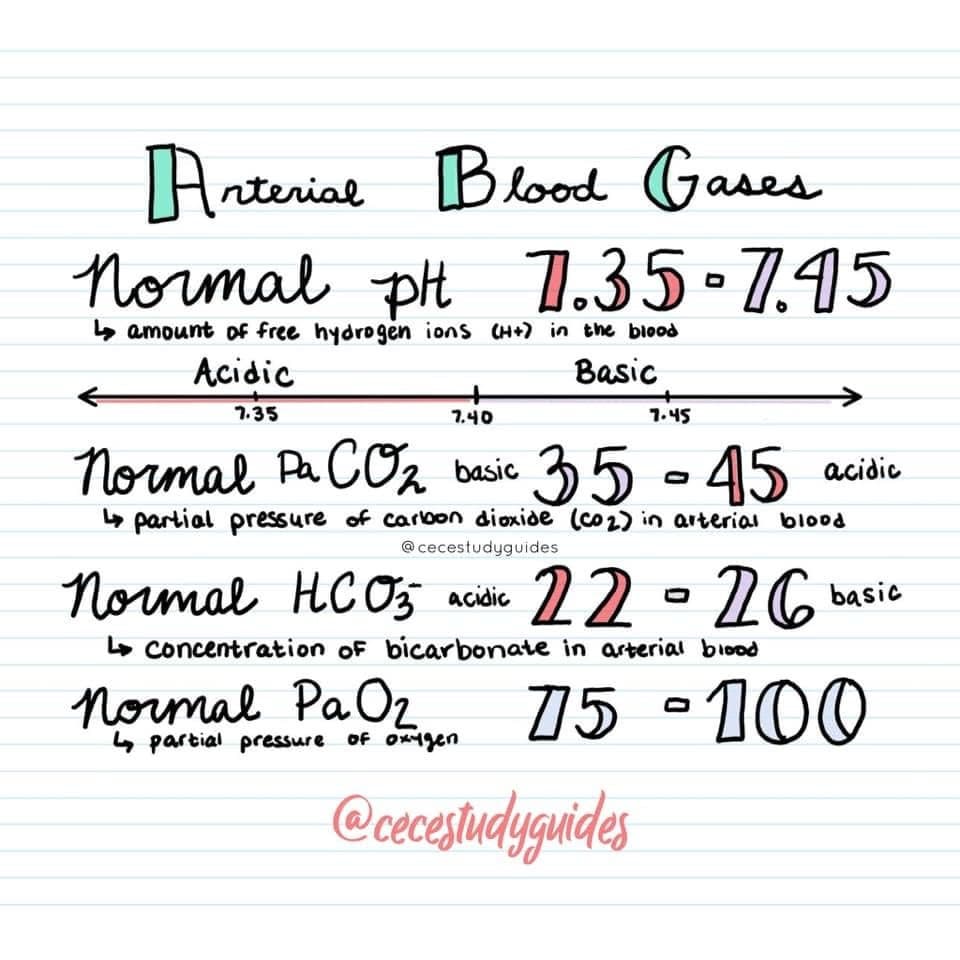 Arterial Blood Gases
Normal pH 7.35 - 7.45
↳ amount of free hydrogen ions (H+) in the blood
Acidic Basic
7.35 7.40 7.45
Normal PaCO2 basic 35 - 45 acidic
↳ partial pressure of carbon dioxide (CO2) in arterial blood
@cecestudyguides
Normal HCO3- acidic 22 - 26 basic
↳ concentration of bicarbonate in arterial blood
Normal PaO2 75 - 100
↳ partial pressure of oxygen
@cecestudyguides